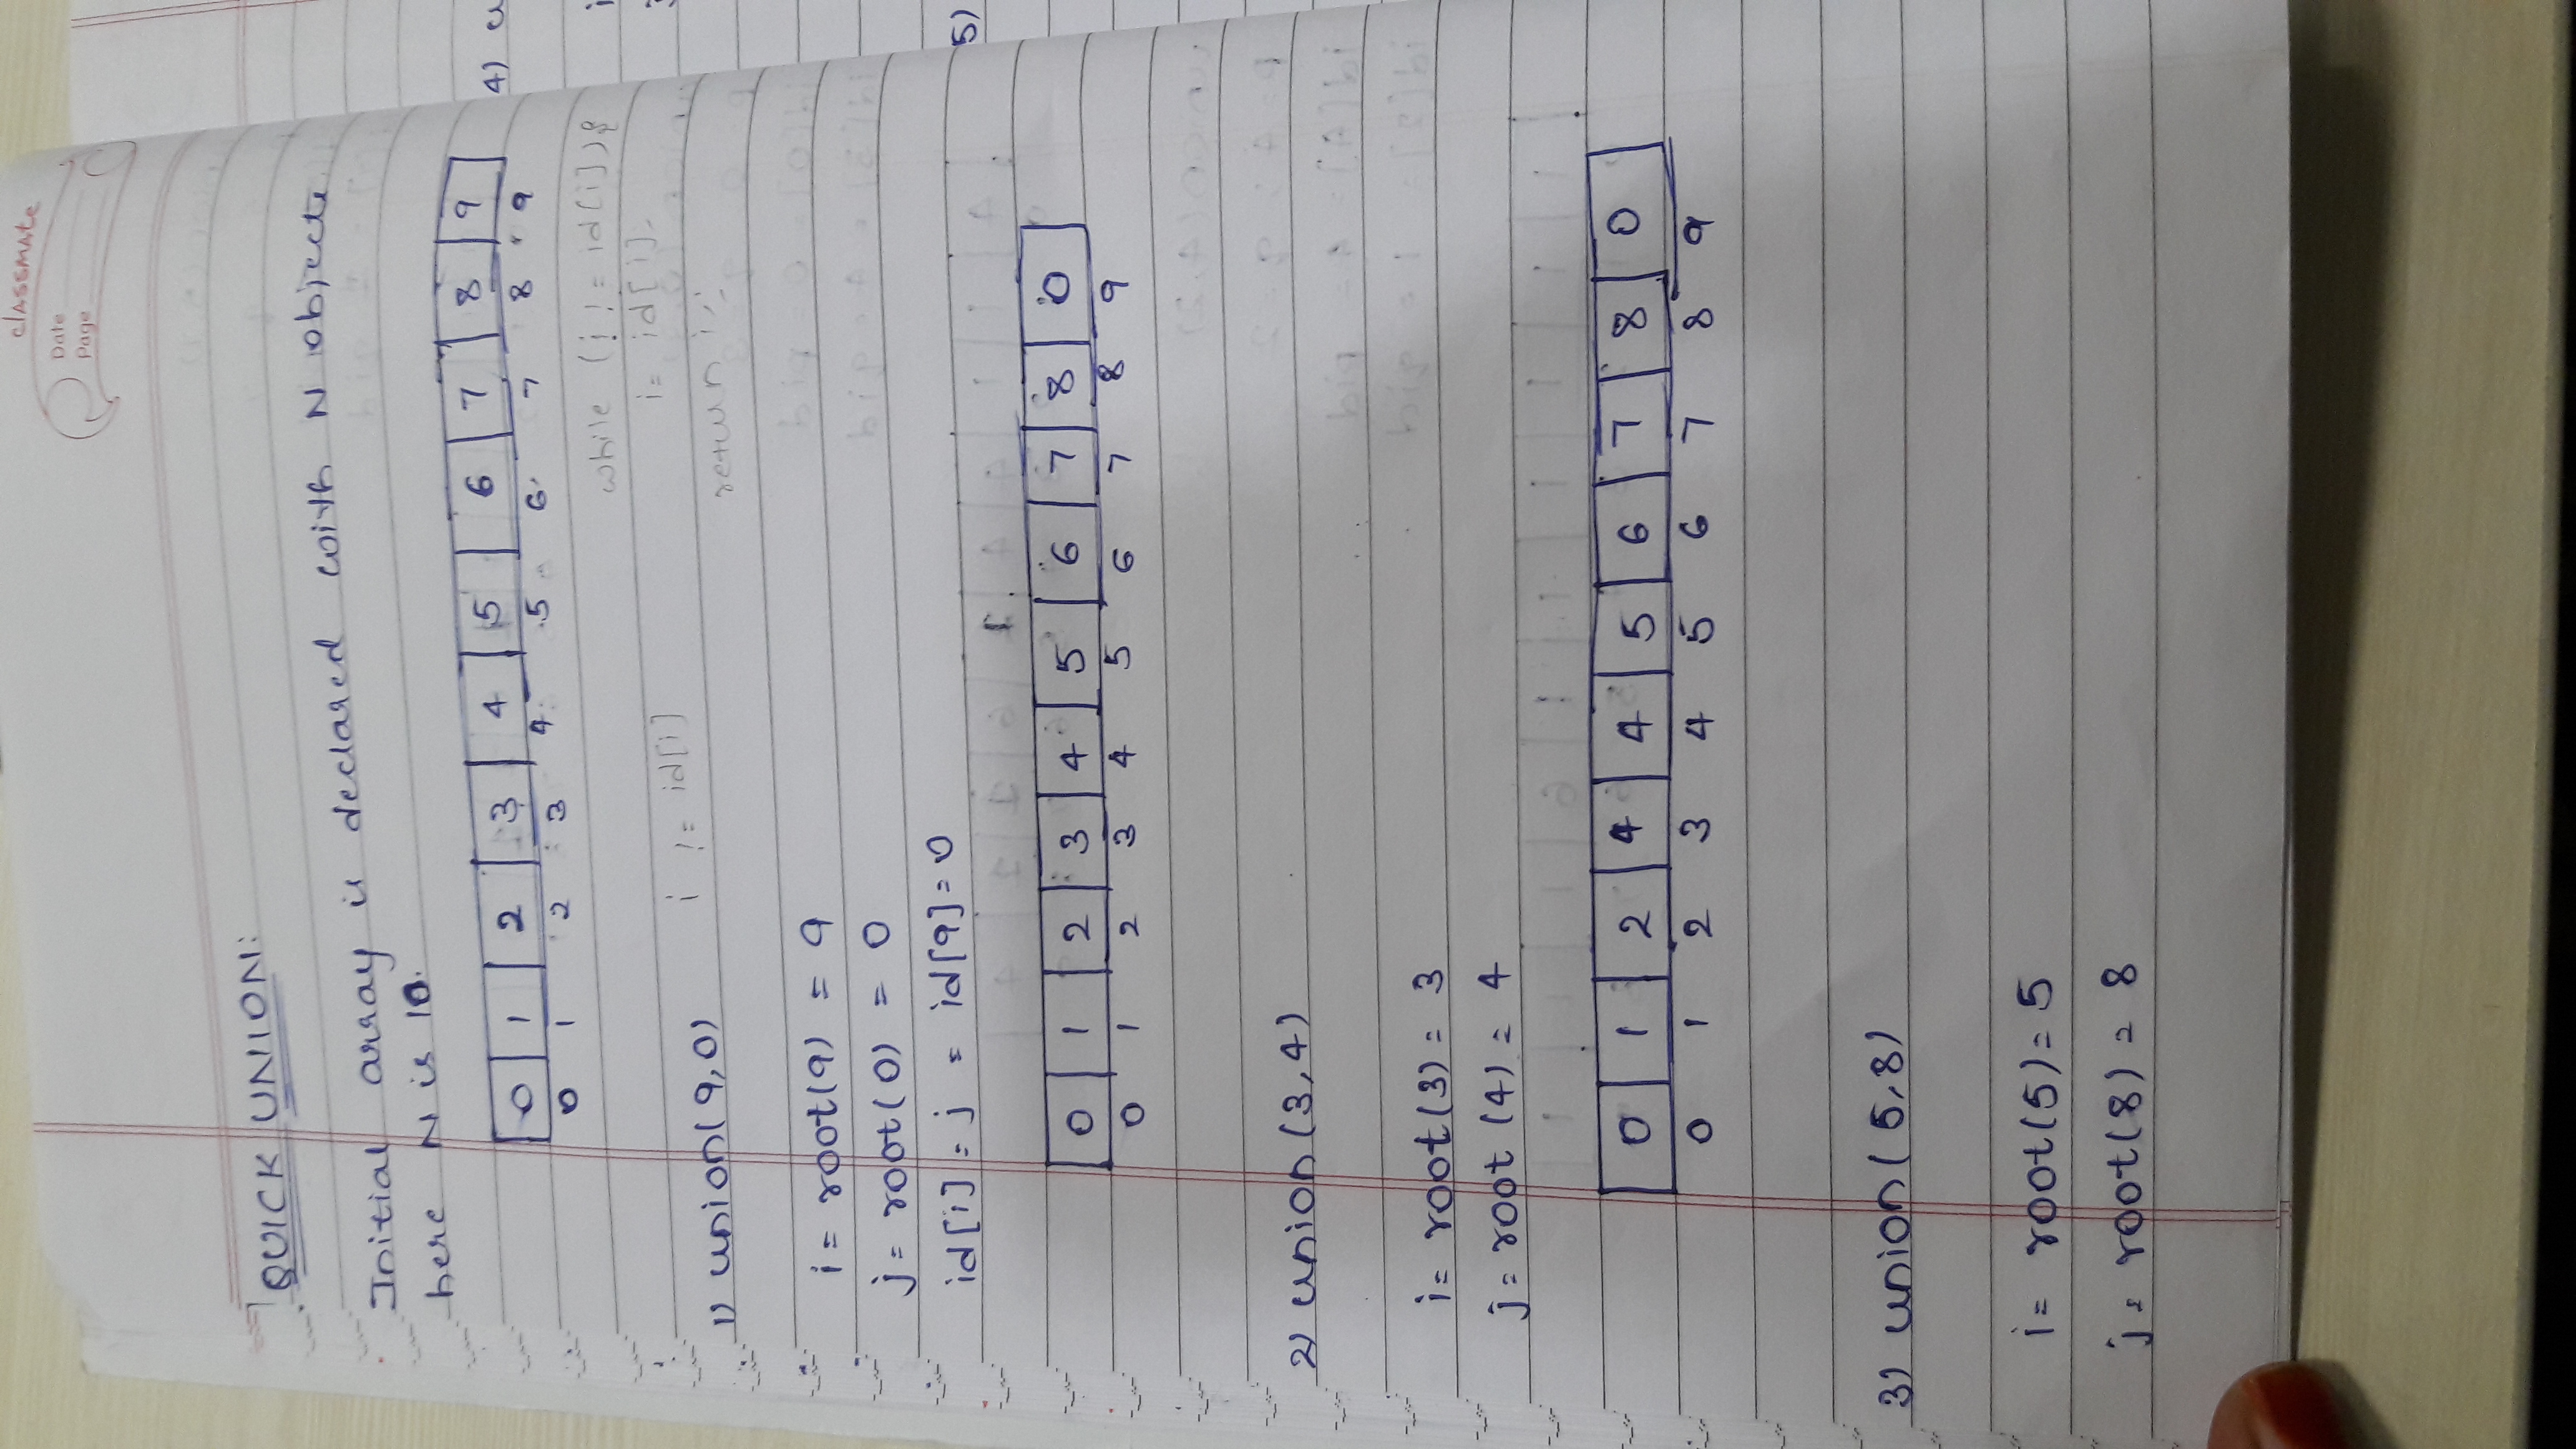 classmate
Date
Page
QUICK UNION:
Initial array is declared with N objects
here N is 10.
0 1 2 3 4 5 6 7 8 9
0 1 2 3 4 5 6 7 8 9
while (i != id[i]){
i != id[i]
i = id[i].
1) union(9,0)
return i;
i = root(9) = 9
j = root(0) = 0
id[i] = j = id[9] = 0
0 1 2 3 4 5 6 7 8 0
0 1 2 3 4 5 6 7 8 9
2) union(3,4)
i = root(3) = 3
j = root(4) = 4
0 1 2 4 4 5 6 7 8 0
0 1 2 3 4 5 6 7 8 9
3) union(5,8)
i = root(5) = 5
j = root(8) = 8
4) u
5)